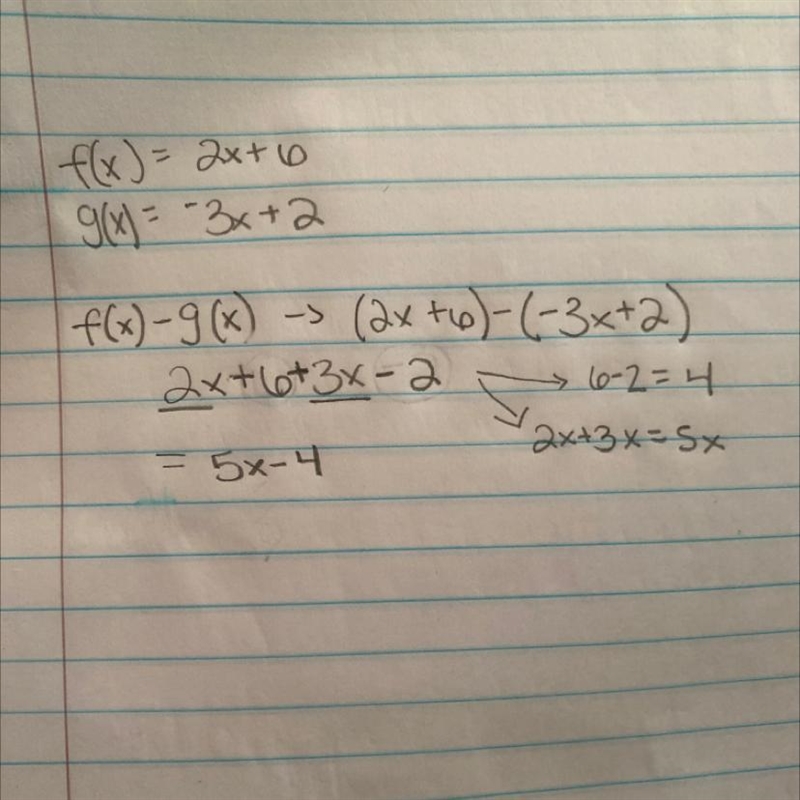 f(x) = 2x+6
g(x) = -3x+2
f(x)-g(x) → (2x+6)-(-3x+2)
2x+6+3x-2 → 6-2=4
2x+3x=5x
= 5x-4